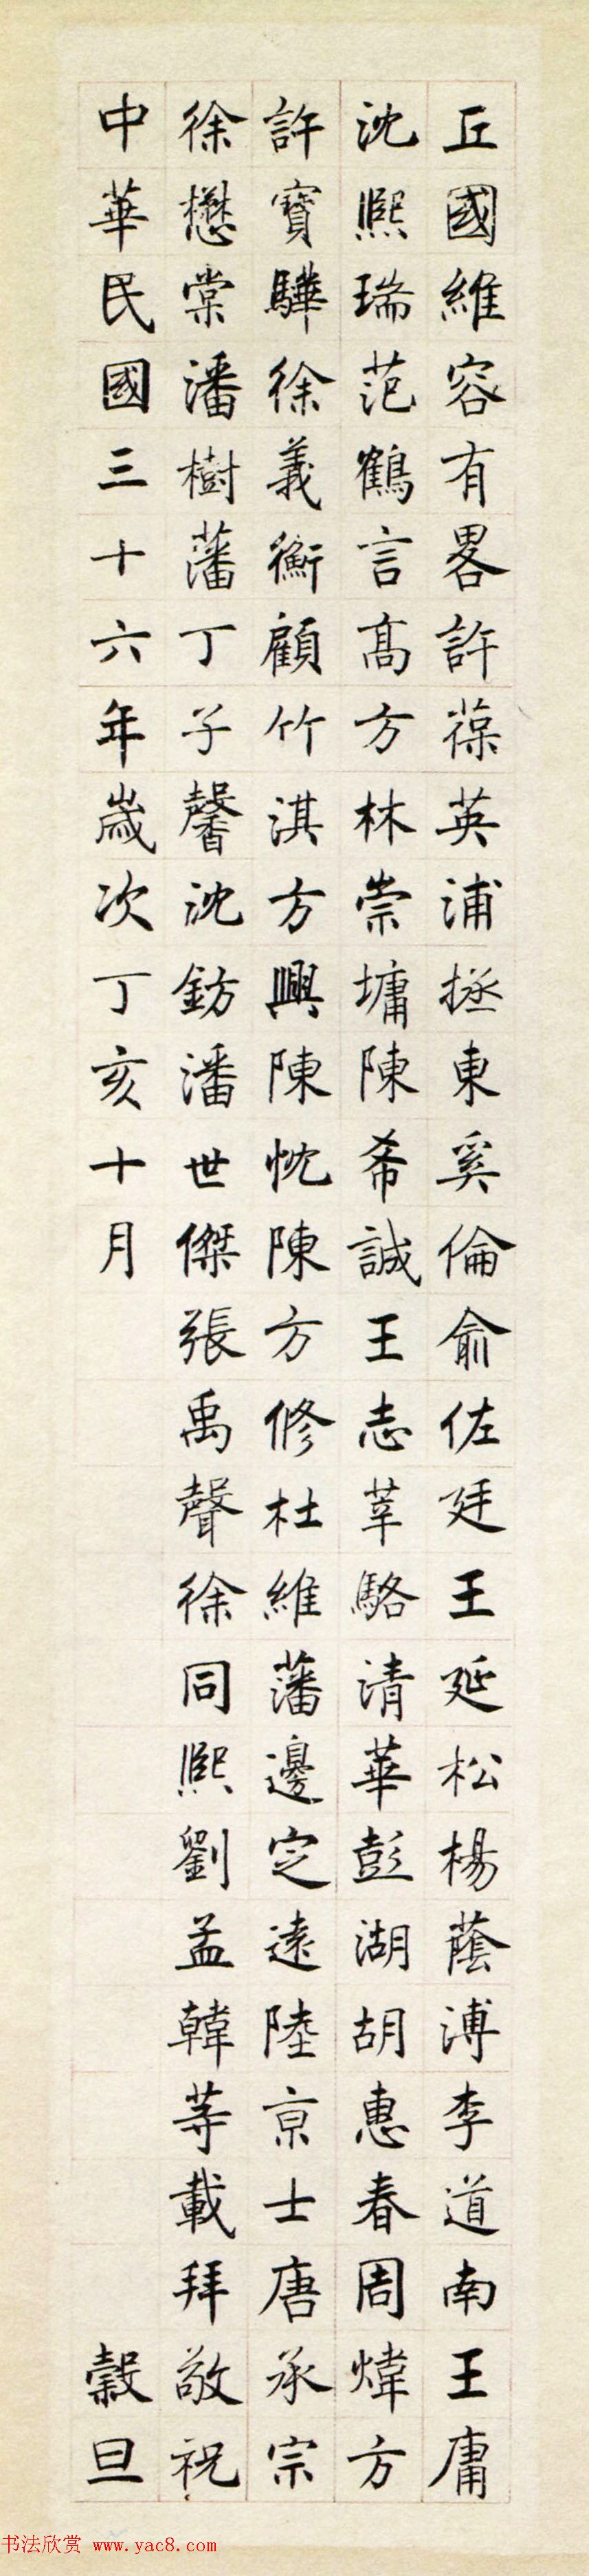 丘國維容有畧許葆英浦拯東奚倫俞佐廷王延松楊蔭溥李道南王庸
沈熈瑞范鶴言高方林崇墉陳希誠王志莘駱清華彭湖胡惠春周煒方
許寶驊徐義衡顧竹淇方興陳忱陳方修杜維藩邊定遠陸京士唐承宗
徐懋棠潘樹藩丁子馨沈鈁潘世傑張禹聲徐同熈劉孟韓等載拜敬祝
中華民國三十六年歲次丁亥十月穀旦
书法欣赏 www.yac8.com